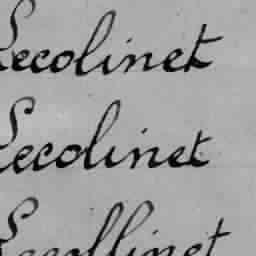 Lecolinet
Lecolinet
Lecollinet